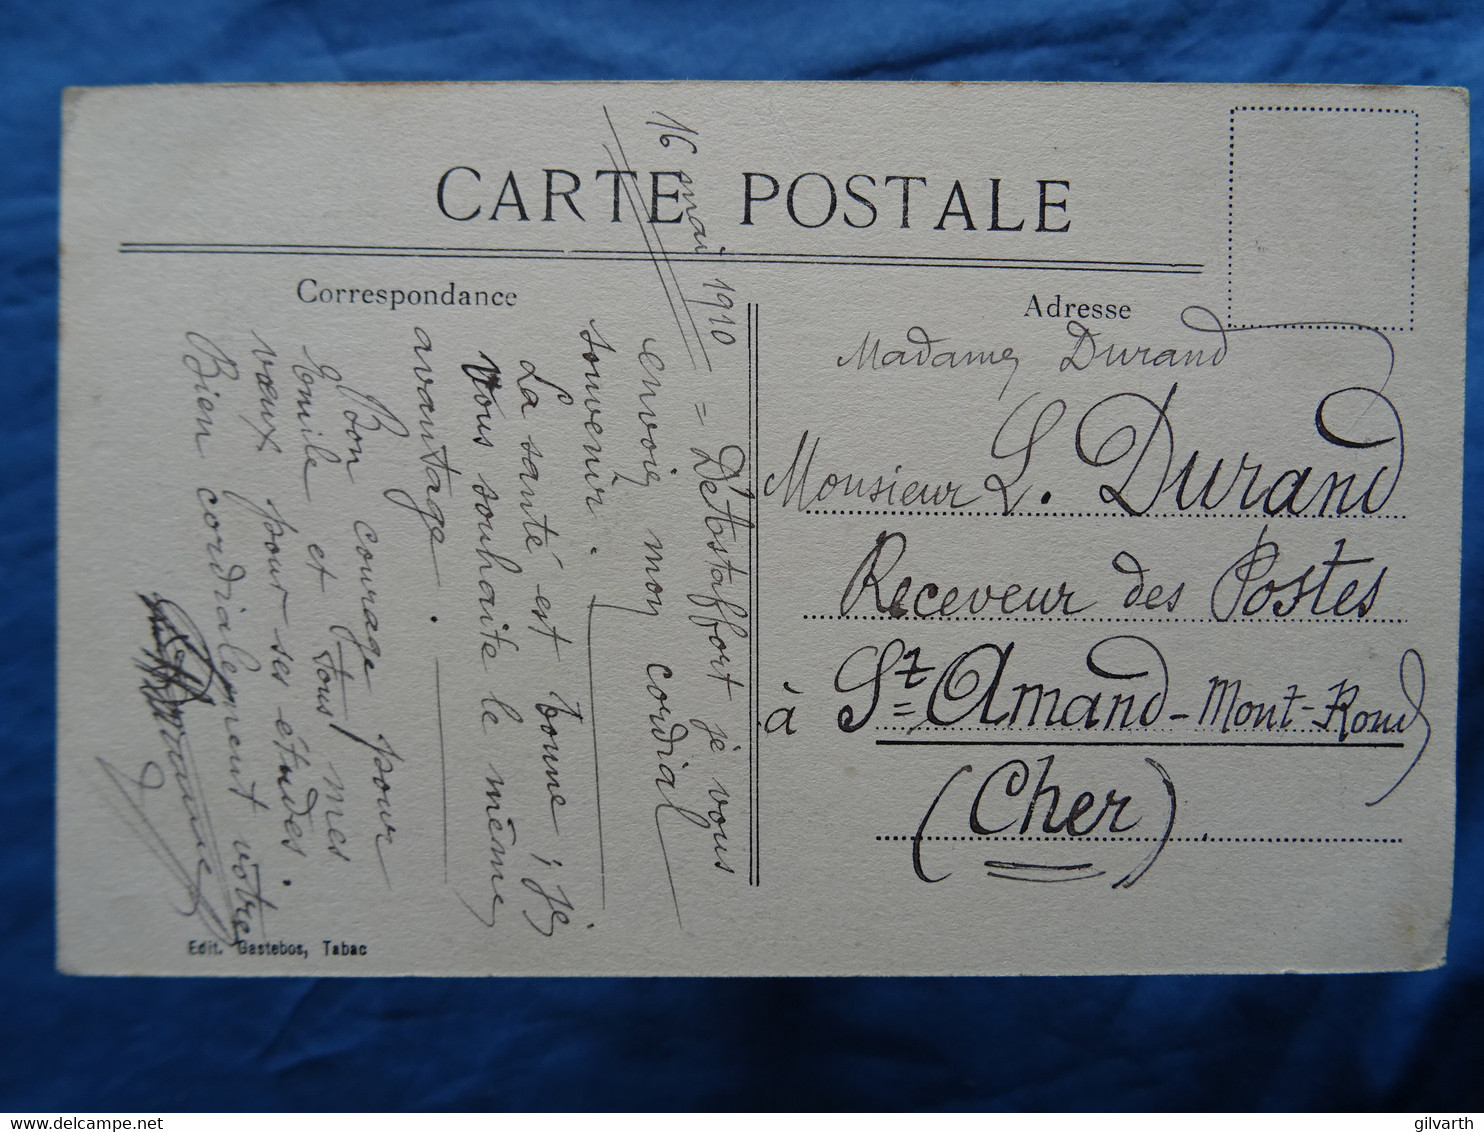 CARTE POSTALE
Correspondance
16 mai 1910
= D'Astaffort je vous
envoie mon cordial
souvenir.
La santé est bonne ; je
Vous souhaite le même
avantage.
Bon courage pour
et tous mes
vœux pour ses études.
Bien cordialement votre
Edit. Gastebos, Tabac
Adresse
Madame Durand
Monsieur L. Durand
Receveur des Postes
à St= Amand-Mont-Rond
(Cher).
gilvarth